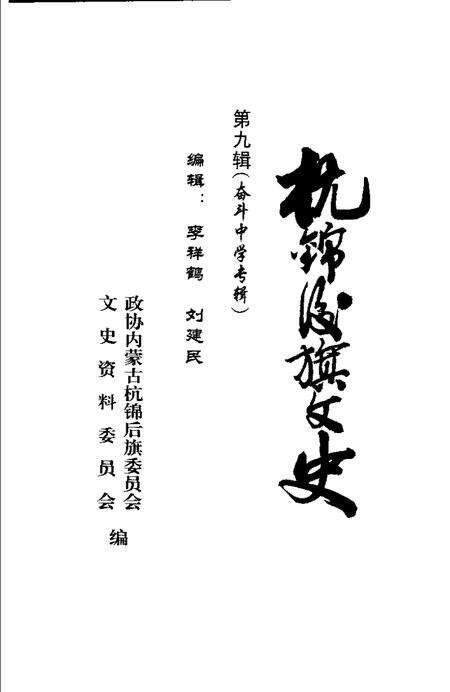 杭锦後旗文史
第九辑(奋斗中学专辑)
编辑：李祥鹤 刘建民
政协内蒙古杭锦后旗委员会
文史资料委员会
编